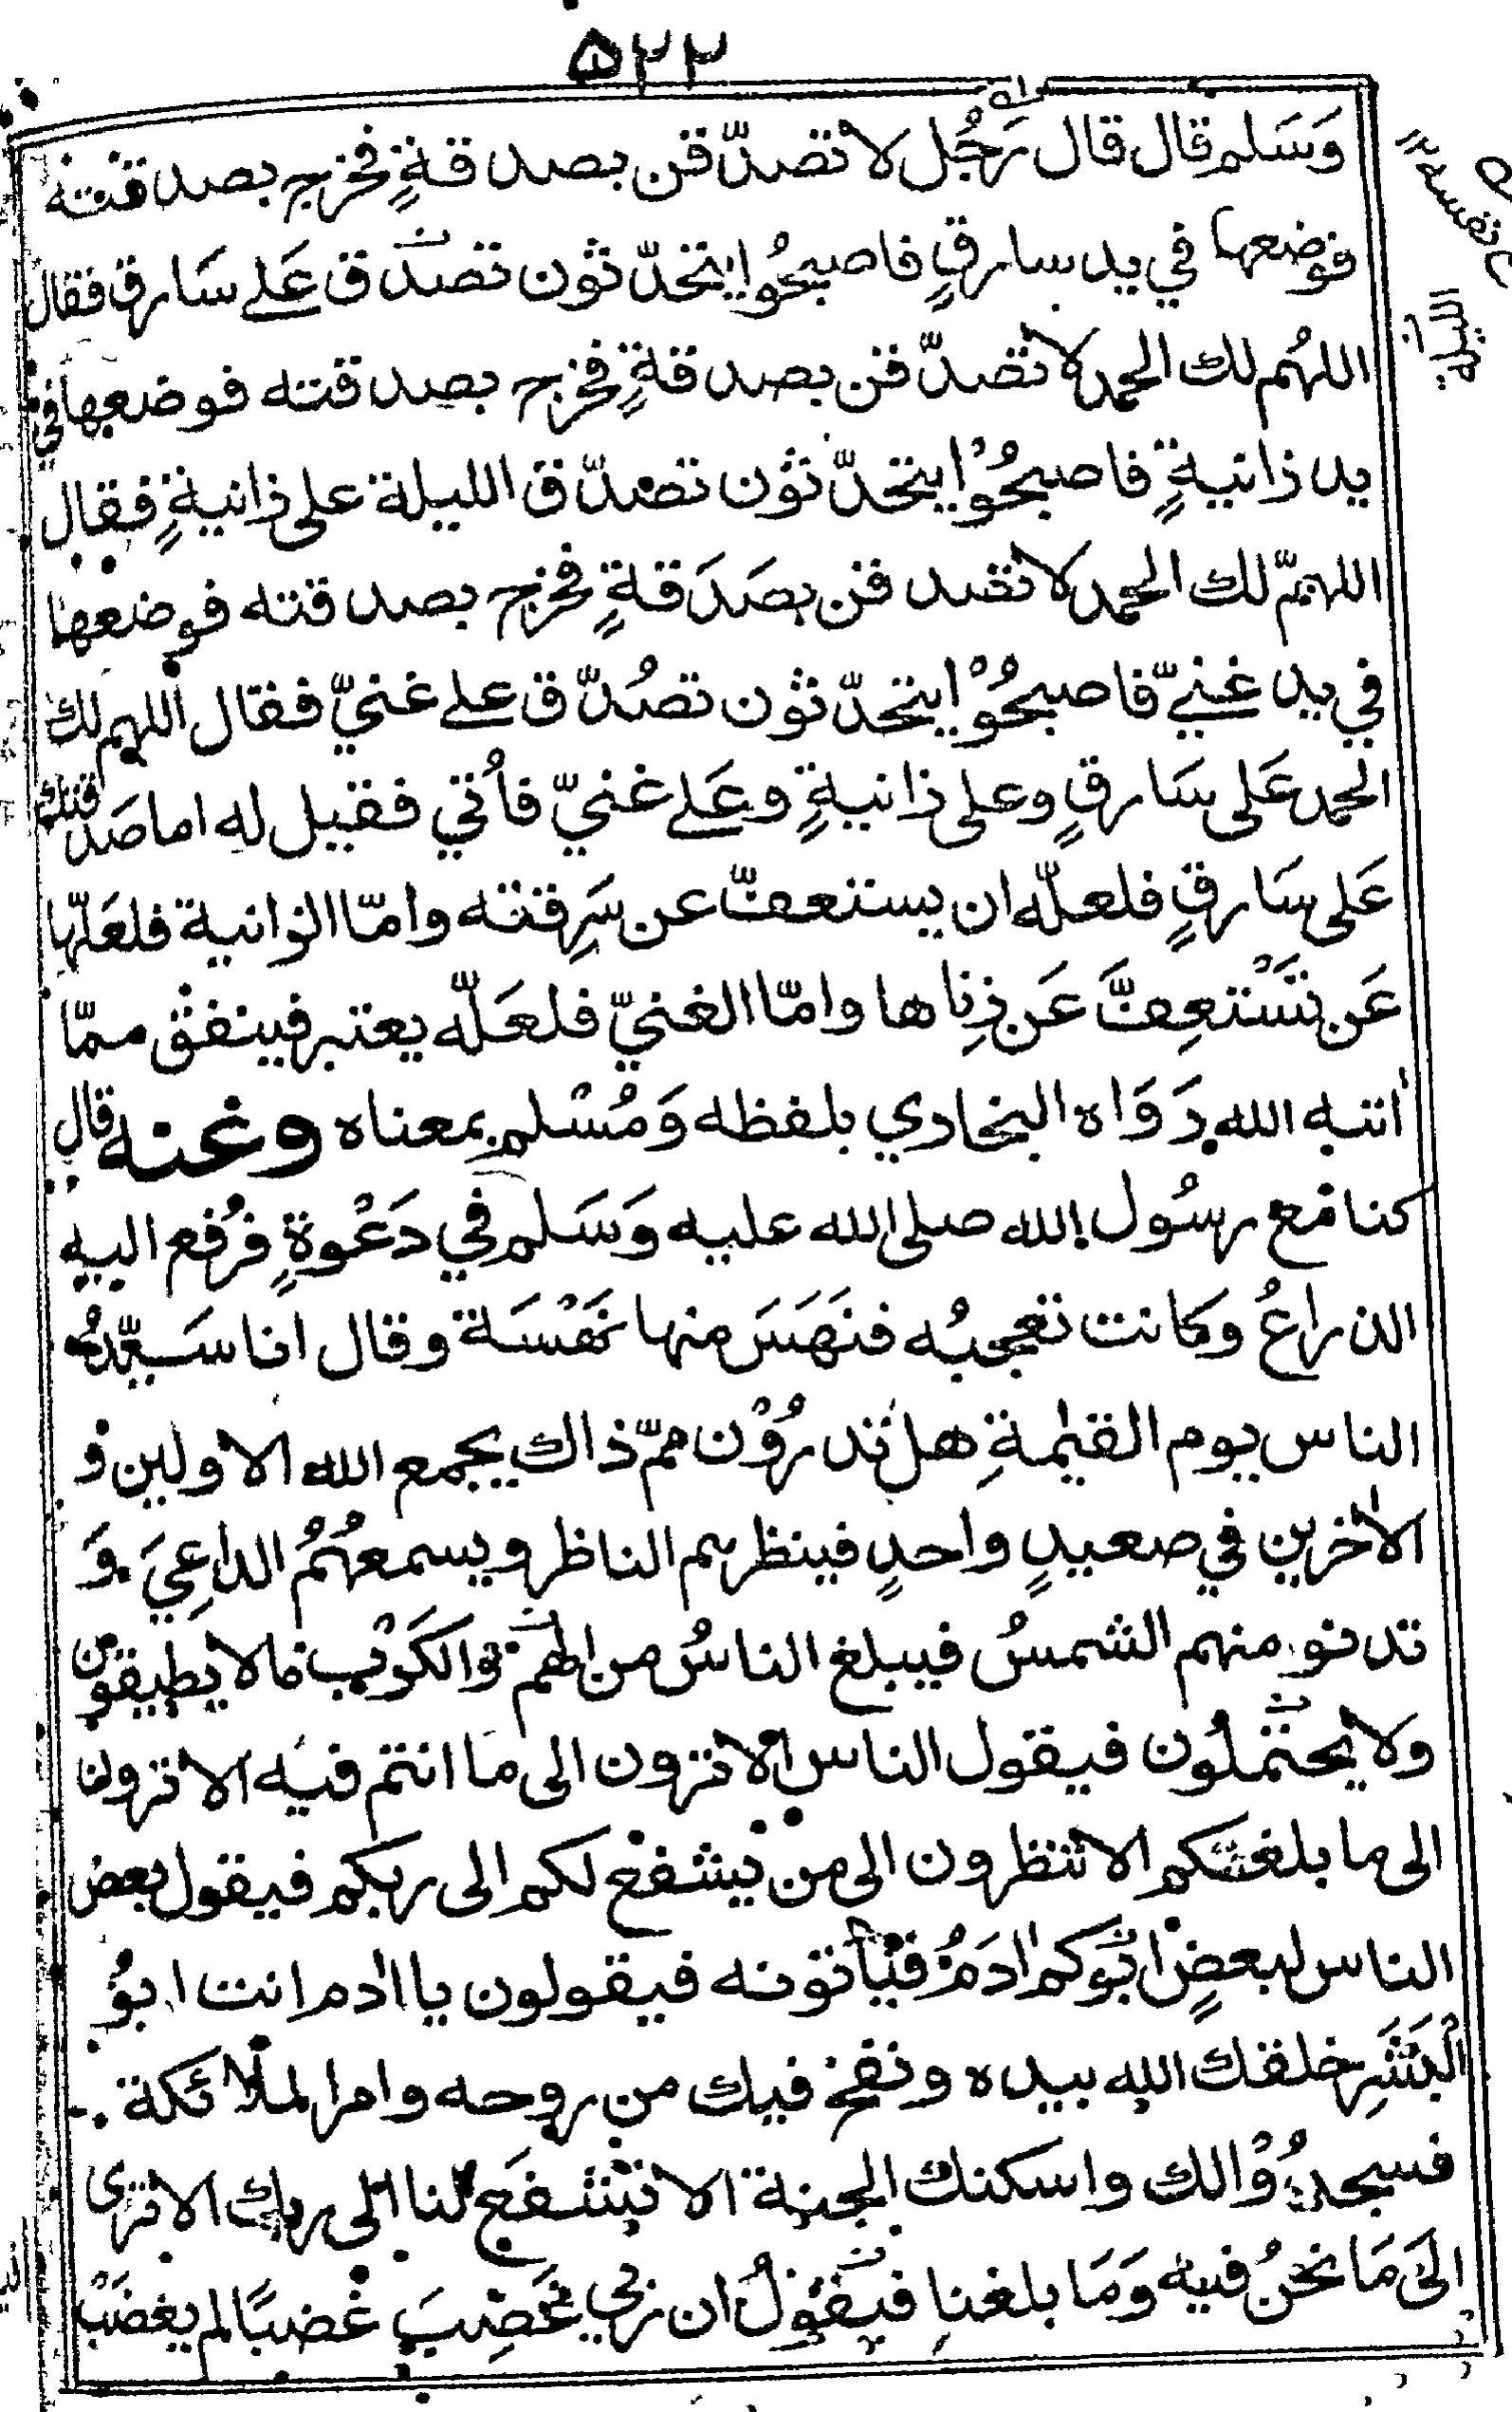 ۵۲۲
وَسَلم قال قال رَجُل لا تصدّقن بصدقةٍ فخرج بصدقته
فوضعها في يد سارقٍ فاصبحُوا يتحدّثون تصدّق عَلے سَارق فقال
اللهُم لك الحمد لا تصدّقن بصدقةٍ فخرج بصدقته فوضعها في
يد ذانيةٍ فاصبحُوْا يتحدّثون تصدّق الليلة على ذانيةٍ فقال
اللهمّ لك الحمد لا تصدقن بصَدَقةٍ فخرج بصدقته فوضعها
في يد غنيّ فاصبحُوْا يتحدّثون تصُدّق علے غنيّ فقال اللهم لك
الحمد عَلى سَارقٍ وعلى ذانيةٍ وعَلے غنيّ فأتي فقيل له اما صَدقتك
عَلى سَارقٍ فلعلّه ان يستعفّ عن سَرِقته وامّا الزانية فلعَلّها
عَن تَسْتعِفَّ عَن ذِناها وامّا الغنيّ فلعَلّه يعتبر فينفق ممّا
أتٰه الله رَوَاه البخادي بلفظه وَمُسْلم بمعناه وعنه قال
كنا مع رسُول الله صلى الله عليه وَسَلم في دَعْوةٍ فرُفع اليه
الذراعُ وكانت تعجبُه فنَهَسَ منها نَهْسَة وقال انا سَيّدُ
الناس يوم القيٰمةِ هل تدرُوْن ممّ ذاك يجمع الله الاولين و
الاٰخرين في صعيدٍ واحدٍ فينظرهم الناظر ويسمعهُمُ الداعِيَ وَ
تدنو منهم الشمسُ فيبلغ الناسُ من الهم والكَرْب مالا يطيقون
ولا يحتملُون فيقول الناس الا ترون الى ما انتم فيه الا ترون
الى ما بلغكم الا تنظرون الى من يشفع لكم الى ربكم فيقول بعض
الناس لبعضٍ ابوكم اٰدَمُ فيأتونه فيقولون يا اٰدم انت ابوُ
الْبَشَرِ خلقك الله بيده ونفخ فيك من روحه وامر الملائكة
فسجدُوْا لك واسكنك الجنة الا تشفَع لنا الى ربك الا ترى
الىٰ مَا نحنُ فيه وَمَا بلغنا فيقولُ ان ربي غَضِبَ غضبًا لم يغضَبْ